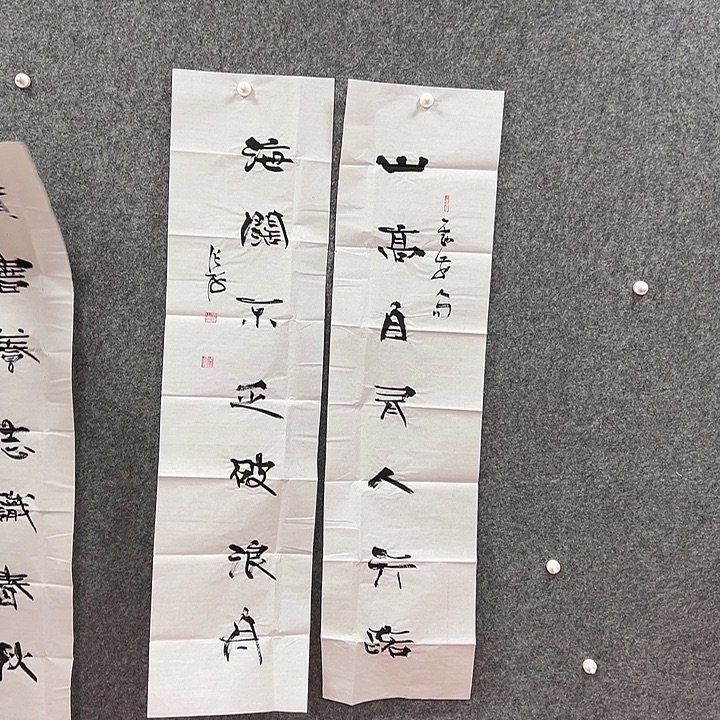 山高自有人行路
海闊不乏破浪舟
書養志識春秋